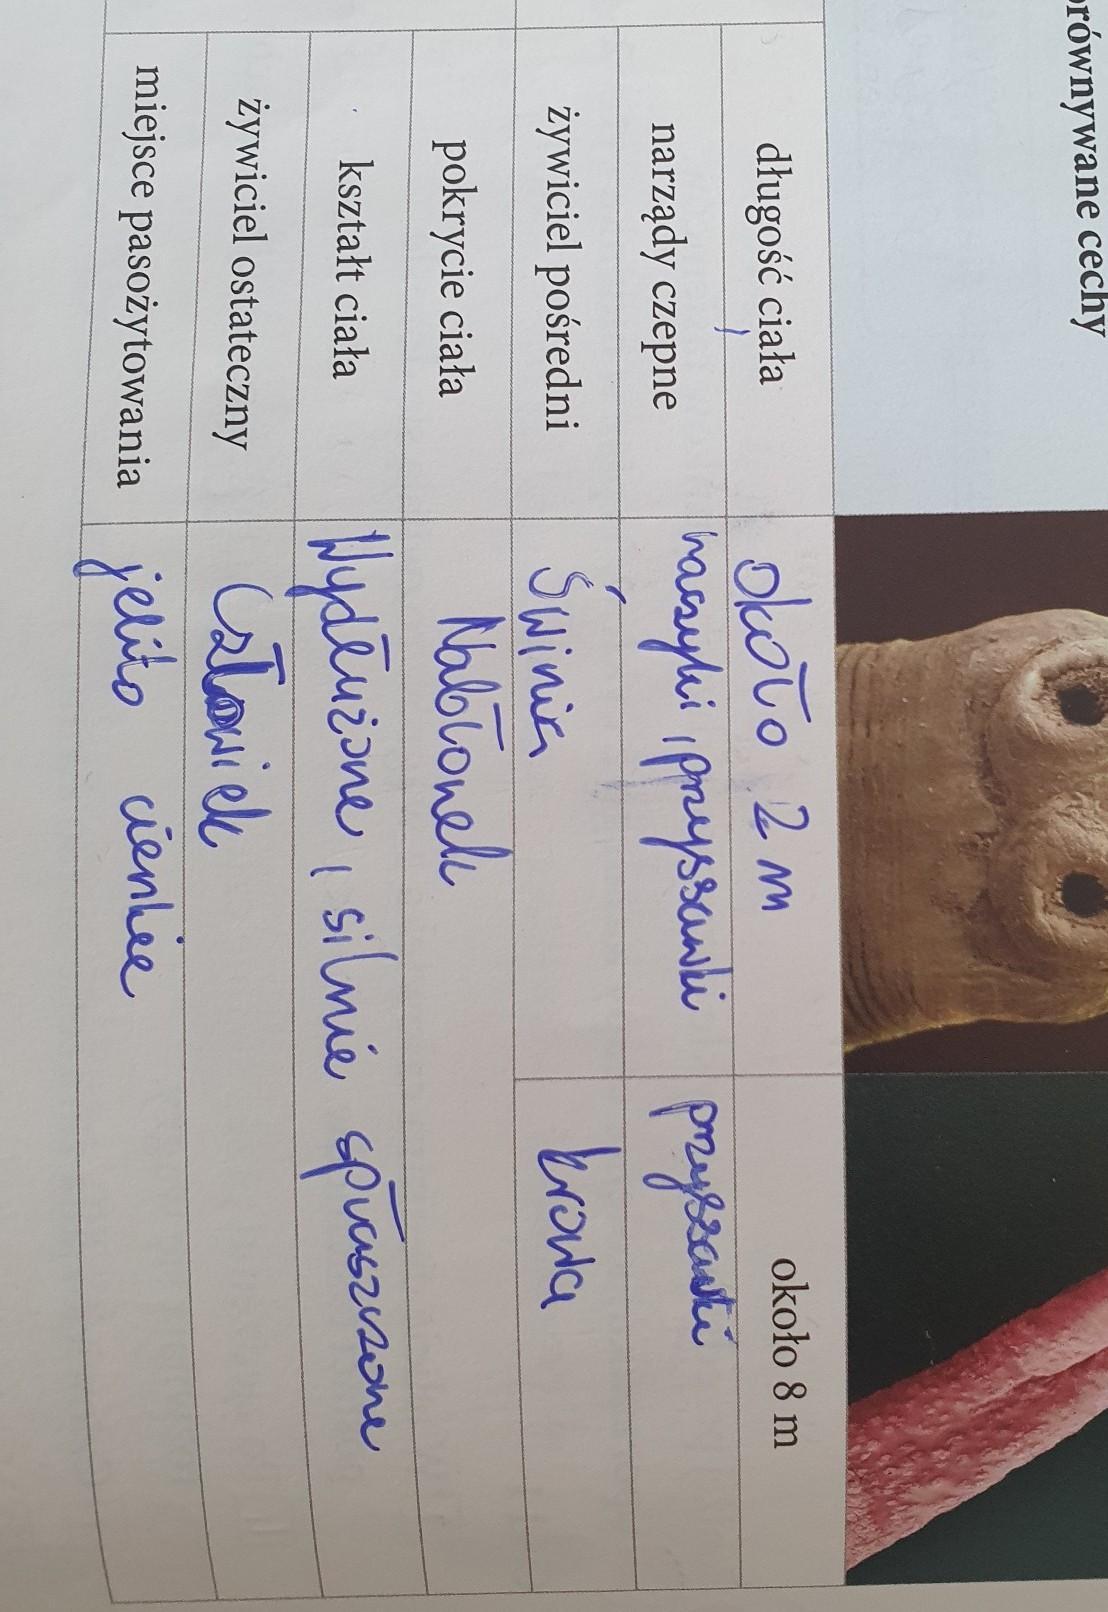 porównywane cechy
długość ciała około 2 m około 8 m
narządy czepne haszyki i przyssawki przyssawki
żywiciel pośredni Świnia krowa
pokrycie ciała Nabłonek
kształt ciała Wydłużone i silnie spłaszczone
żywiciel ostateczny Człowiek
miejsce pasożytowania jelito cienkie